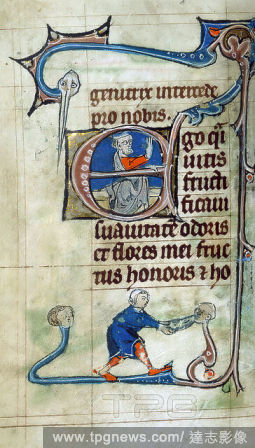 genitrix intercede
pro nobis.
Ego q̄
uitis
fructi
ficaui
suauitate odoris
et flores mei fruc
tus honoris ⁊ ho
TPG
www.tpgnews.com / 達志影像